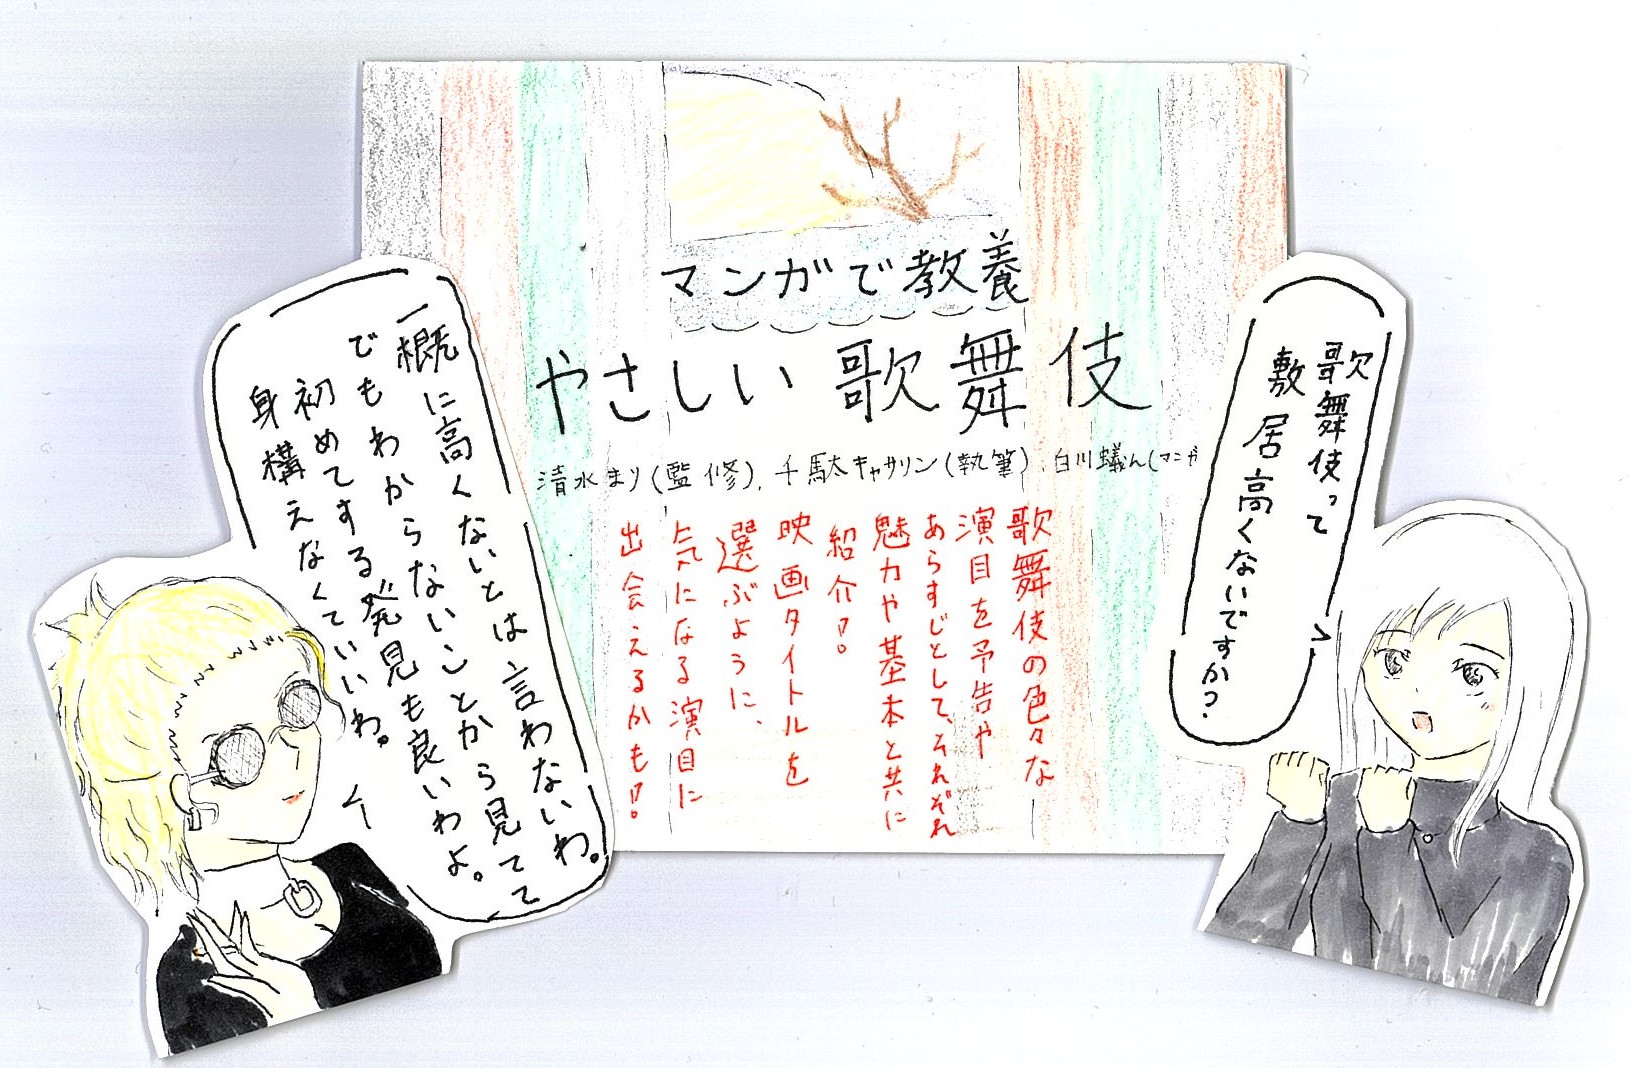 マンガで教養
やさしい歌舞伎
清水まり(監修), 千駄キャサリン(執筆), 白川蟻ん(マンガ
歌舞伎って
敷居高くないですか?
一概に高くないとは言わないわ。
でもわからないことから見てて
初めてする発見も良いわよ。
身構えなくていいわ。
歌舞伎の色々な
演目を予告や
あらすじとして、それぞれ
魅力や基本と共に
紹介!!
映画タイトルを
選ぶように、
気になる演目に
出会えるかも!!